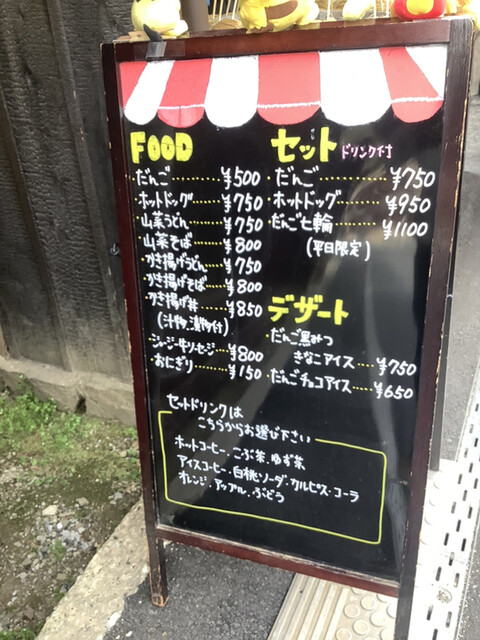 FOOD
だんご ¥500
ホットドッグ ¥750
山菜うどん ¥750
山菜そば ¥800
かき揚げうどん ¥750
かき揚げそば ¥800
かき揚げ丼 ¥850
(汁物、漬物付)
ジャージー牛ソーセージ ¥800
おにぎり ¥150
セット ドリンク付
だんご ¥750
ホットドッグ ¥950
だんご七輪 ¥1100
(平日限定)
デザート
だんご黒みつ
きなこアイス ¥750
だんごチョコアイス ¥650
セットドリンクは
こちらからお選び下さい
ホットコーヒー、こぶ茶、ゆず茶
アイスコーヒー・白桃ソーダ・カルピス・コーラ
オレンジ・アップル・ぶどう